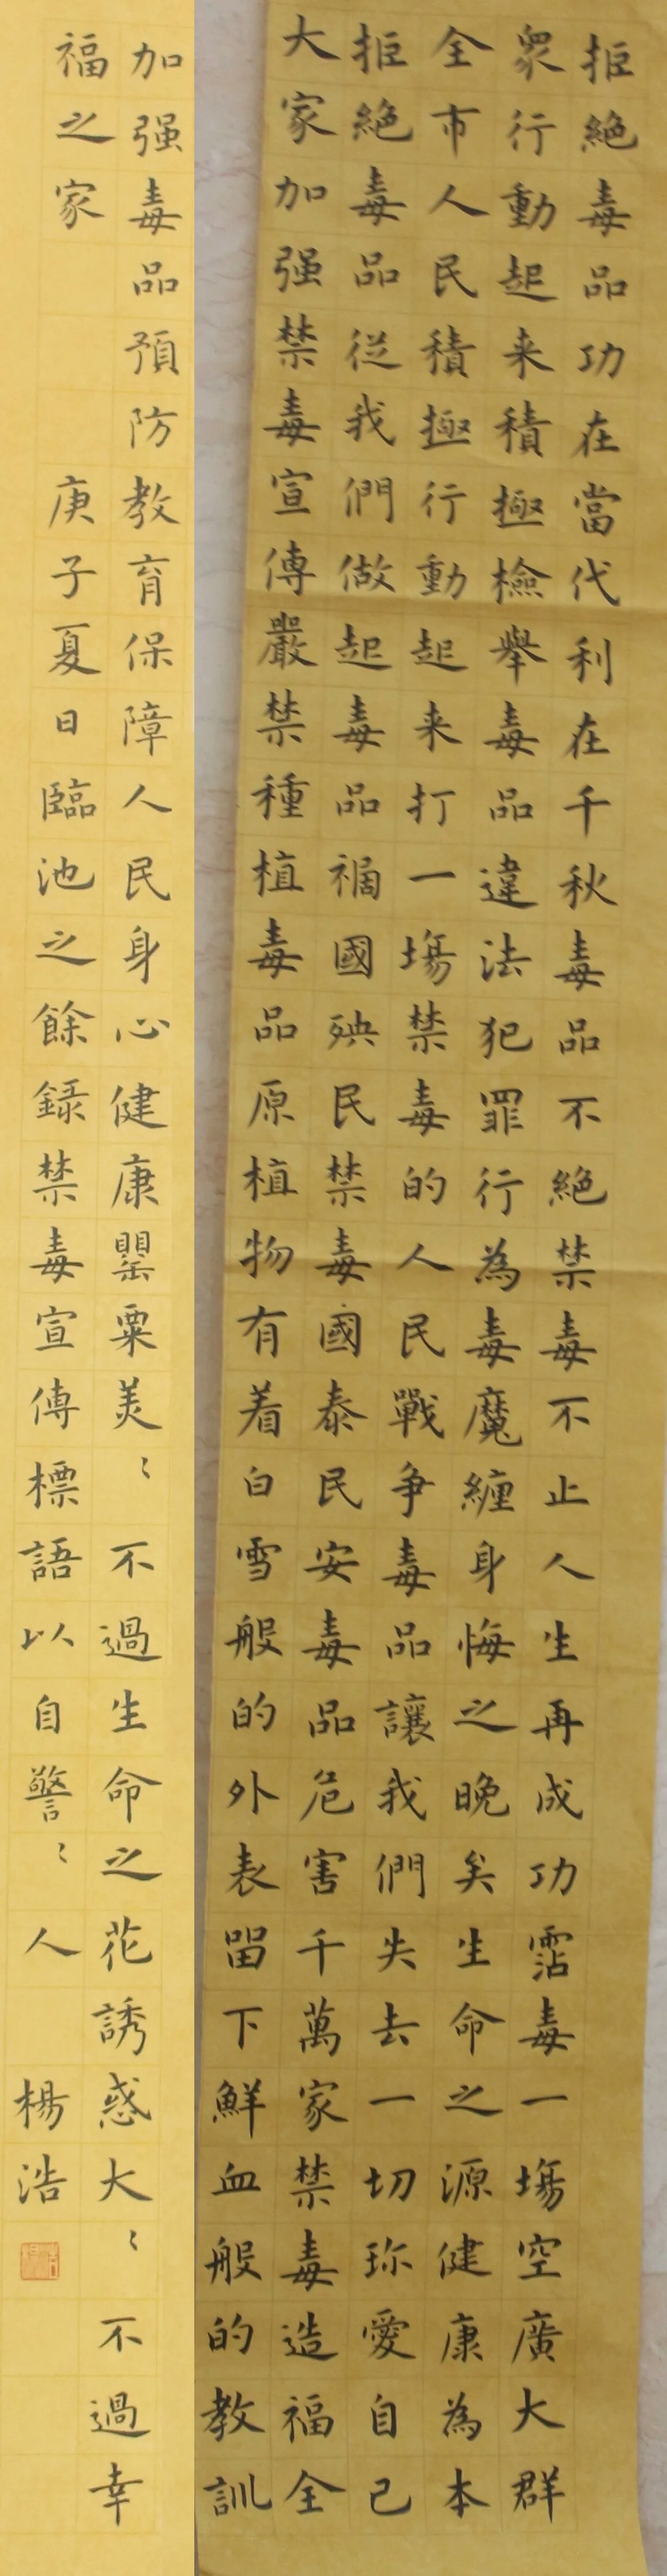 拒絕毒品功在當代利在千秋毒品不絕禁毒不止人生再成功霑毒一塲空廣大群
衆行動起来積極檢舉毒品違法犯罪行為毒魔纏身悔之晚矣生命之源健康為本
全市人民積極行動起来打一塲禁毒的人民戰争毒品讓我們失去一切珎愛自己
拒絕毒品從我們做起毒品禍國殃民禁毒國泰民安毒品危害千萬家禁毒造福全
大家加强禁毒宣傳嚴禁種植毒品原植物有着白雪般的外表畱下鮮血般的教訓
加强毒品預防教育保障人民身心健康罌粟美〻不過生命之花誘惑大〻不過幸
福之家 庚子夏日臨池之餘録禁毒宣傳標語以自警〻人 楊浩